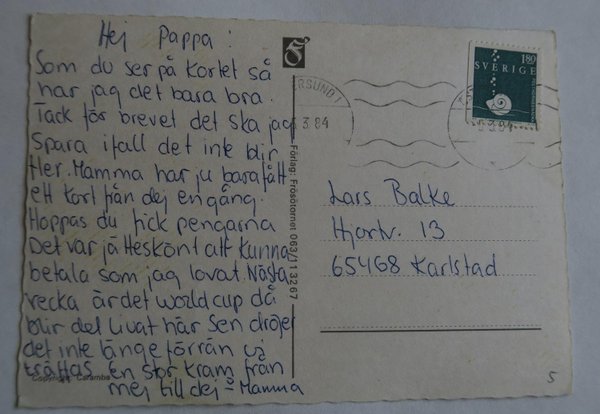 Hej Pappa!
Som du ser på kortet så
har jag det bara bra.
Tack för brevet det ska jag
Spara ifall det inte blir
fler. Mamma har ju bara fått
ett kort från dej en gång.
Hoppas du fick pengarna
Det var jätteskönt att kunna
betala som jag lovat. Nästa
vecka är det world cup då
blir det livat här Sen dröjer
det inte länge förrän vi
träffas. En stor kram från
mej till dej = Mamma
Copyright: Caramba
Förlag: Frösötornet 063/113267
RSUND 1
3.84
180
SVERIGE
5.3.84
Lars Balke
Hjortv. 13
65468 Karlstad
5